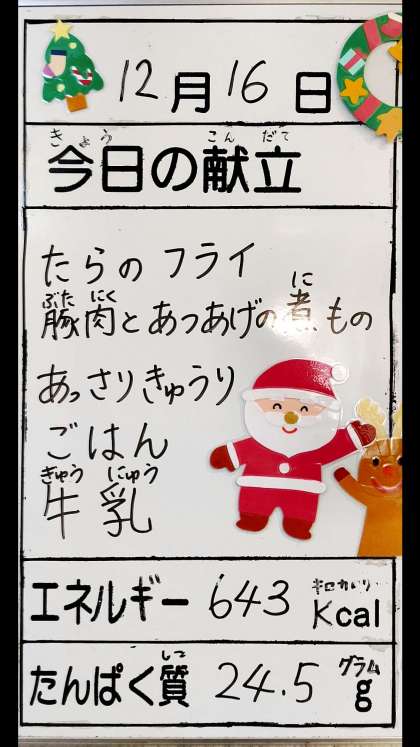 12月16日
きょう こんだて
今日の献立
たらのフライ
に
豚肉とあつあげの煮もの
ぶた にく
あっさりきゅうり
ごはん
ぎゅう にゅう
牛乳
エネルギー 643 Kcal
キロカロリー
しつ グラム
たんぱく質 24.5 g